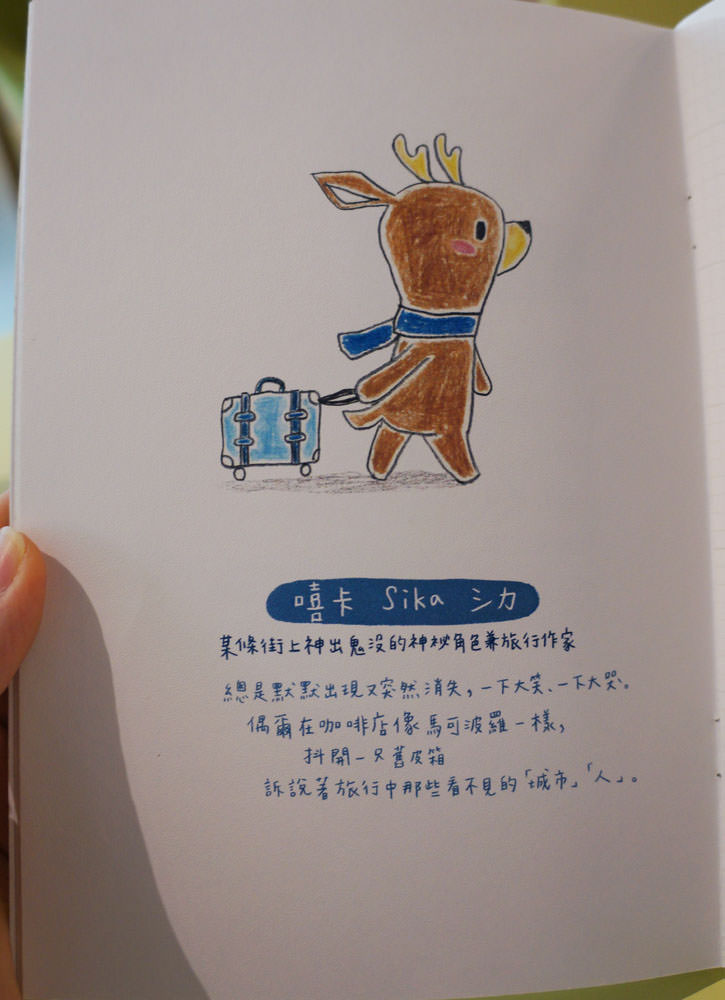 嘻卡 Sika シカ
某條街上神出鬼沒的神祕角色兼旅行作家
總是默默出現又突然消失，一下大笑、一下大哭。
偶爾在咖啡店像馬可波羅一樣，
抖開一只舊皮箱
訴說著旅行中那些看不見的「城市」「人」。